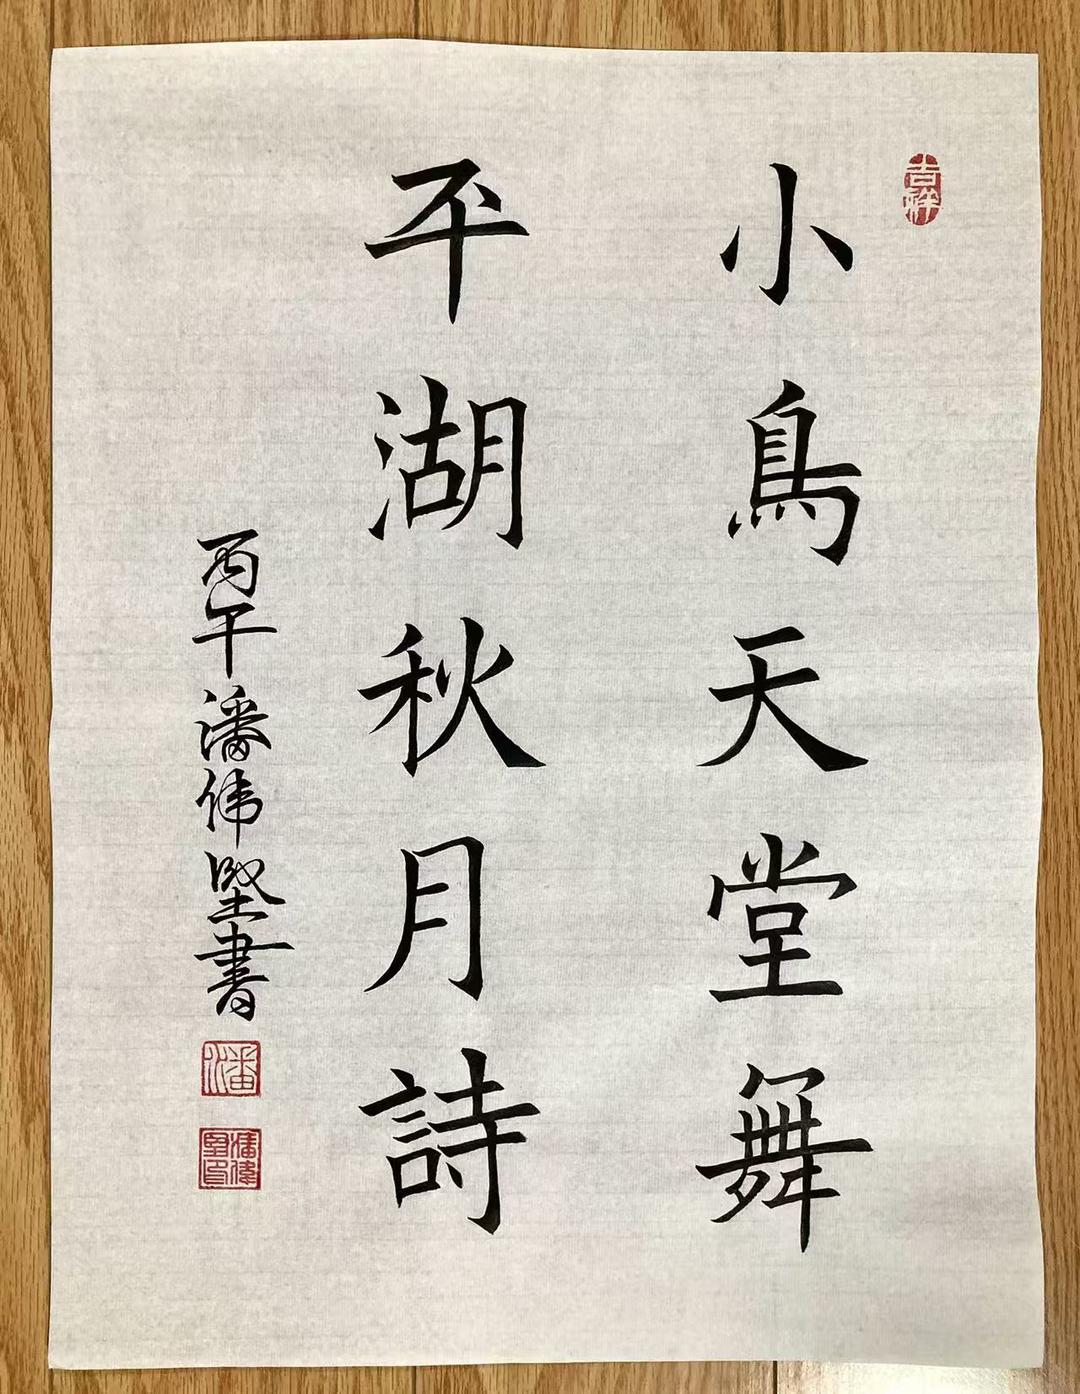 吉祥
小鳥天堂舞
平湖秋月詩
丙午潘伟坚書
潘
潘偉堅印